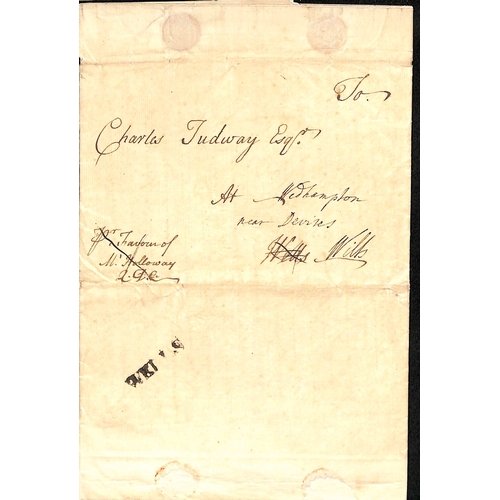 To
Charles Tudway Esqr.
At Wedhampton
near Devises
Wells Wilts
Pr. Favour of
Mr. Holloway
Q.D.C.
WELLS